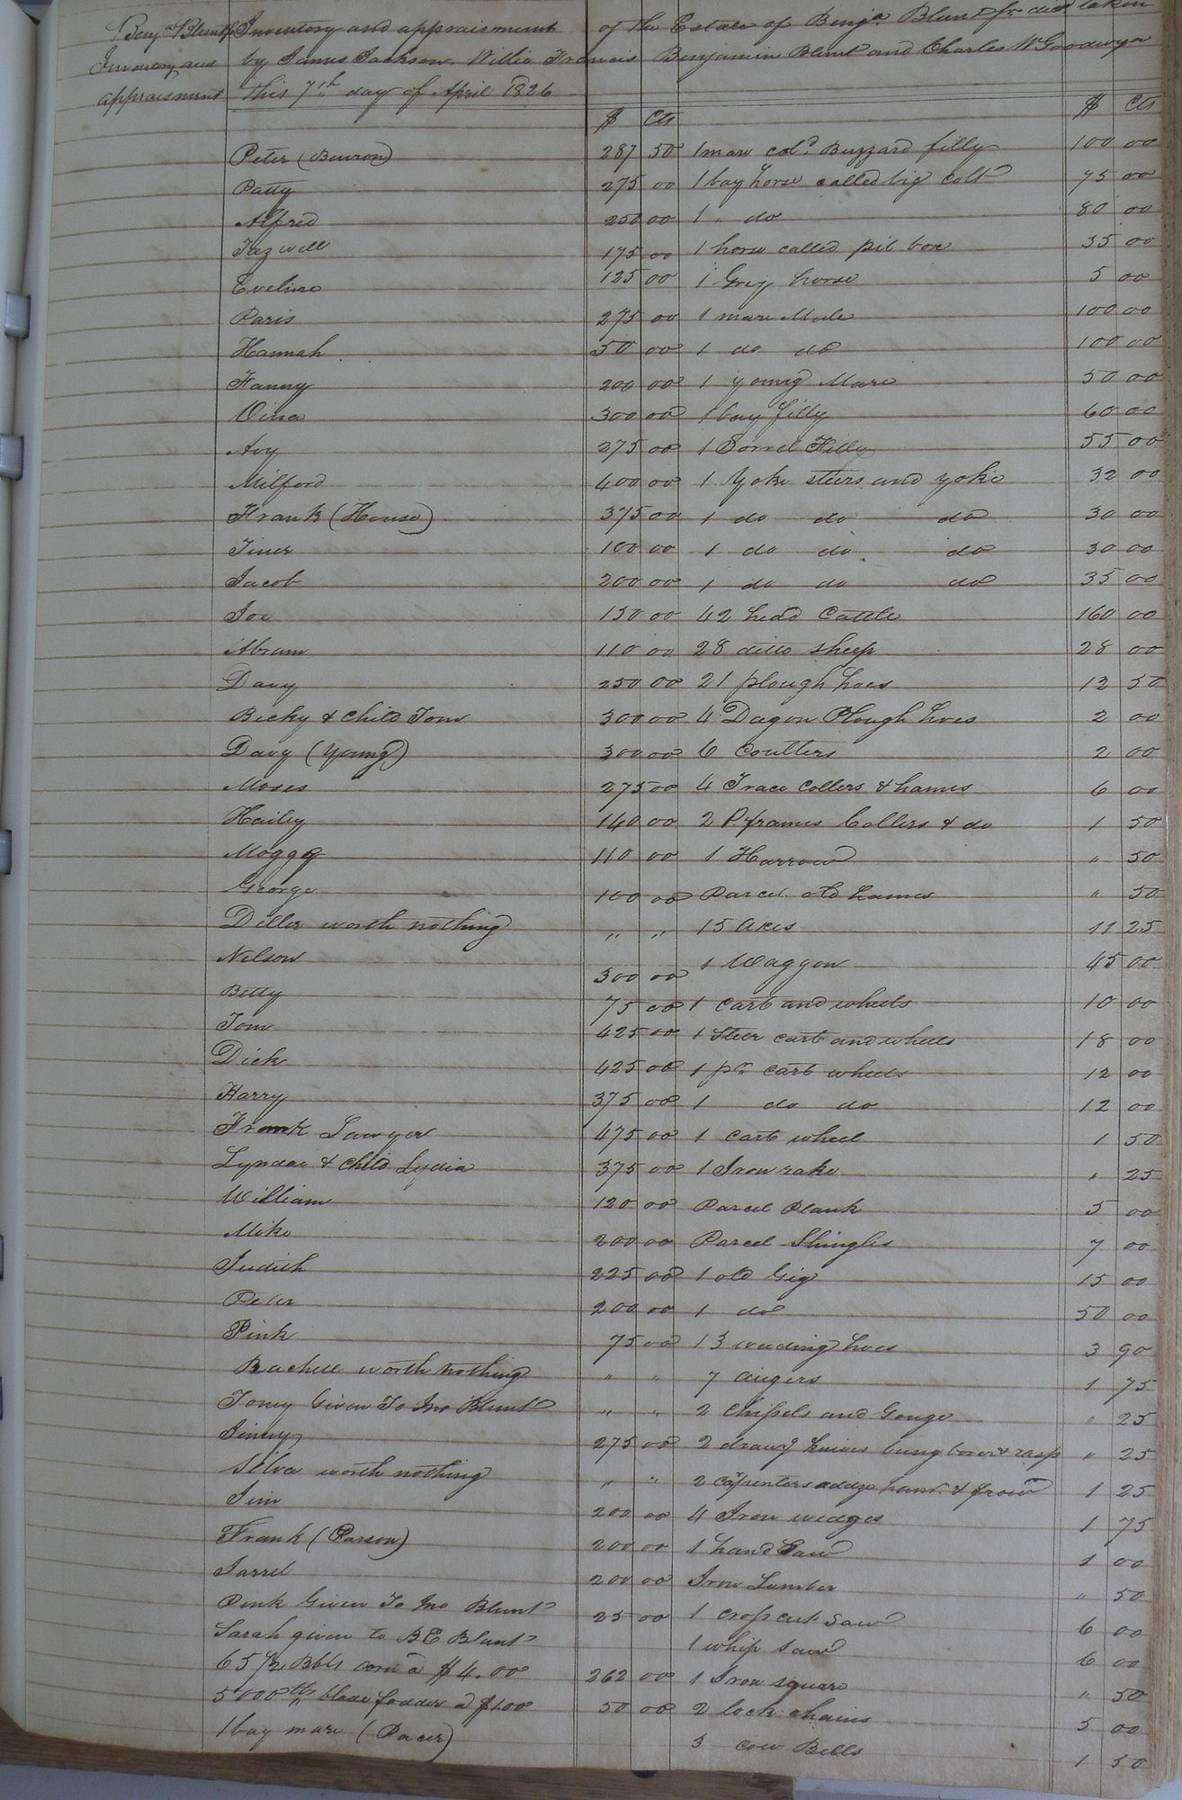 Benj.a Blunt Inventory and appraisment of the Estate of Benja. Blunt Sr. decd taken
Inventory and by James Jackson, Willie Francis Benjamin Blunt and Charles W Goodwyn
appraisment this 7th day of April 1826
$ Cts $ Cts
Peter (Benson) 287 50 1 mare cal.d Buzzard filly 100 00
Patty 275 00 1 bay horse called big colt 75 00
Alfred 250 00 1 do 80 00
Tazwell 175 00 1 horse called pil box 35 00
Eveline 125 00 1 Grey horse 5 00
Paris 275 00 1 mare Mule 100 00
Hannah 50 00 1 do do 100 00
Fanny 200 00 1 young Mare 50 00
Vina 300 00 1 bay filly 60 00
Avy 275 00 1 Sorrel Filly 55 00
Milford 400 00 1 Yoke steers and yoke 32 00
Frank (House) 375 00 1 do do do 30 00
Tiner 100 00 1 do do do 30 00
Jacob 200 00 1 do do do 35 00
Joe 150 00 42 hedd Cattle 160 00
Abram 110 00 28 ditto sheep 28 00
Davy 250 00 21 plough hoes 12 50
Becky & Child Tom 300 00 4 Dagon Plough hoes 2 00
Davy (Young) 300 00 6 Coulters 2 00
Moses 275 00 4 Trace Collers & hames 6 00
Hailey 140 00 2 P. frames Collers & do 1 50
Moggy 110 00 1 Harrow " 50
George 100 00 Parcel old hames " 50
Diller worth nothing " " 15 Axes 11 25
Nelson 300 00 1 Waggon 45 00
Betty 75 00 1 Cart and wheels 10 00
Tom 425 00 1 Steer cart and wheels 18 00
Dick 425 00 1 pr. cart wheels 12 00
Harry 375 00 1 do do 12 00
Frank Sawyer 475 00 1 cart wheel 1 50
Lyndar & child Lydia 375 00 1 Iron rake " 25
William 120 00 Parcel Plank 5 00
Mike 200 00 Parcel Shingles 7 00
Judith 225 00 1 old Gig 15 00
Peter 200 00 1 do 50 00
Pink 75 00 13 weeding hoes 3 90
Rachell worth nothing " " 7 augers 1 75
Toney Given To Jno Blunt " " 2 chissels and Gouge " 25
Jincy 275 00 2 drawg knives bung borer & rasp " 25
Silva worth nothing " " 2 carpenters addze ham.r & frow 1 25
Jim 200 00 4 Iron wedges 1 75
Frank (Parson) 200 00 1 hand Saw 1 00
Jarrel 200 00 Iron Lumber " 50
Pink Given To Jno Blunt 25 00 1 cross cut Saw 6 00
Sarah given to B E Blunt 1 whip Saw 6 00
65 1/2 Bbls corn a $4.00 262 00 1 Iron square " 50
5000 lbs blade fodder a $1.00 50 00 2 lock chains 5 00
1 bay mare (Pacer) 3 cow Bells 1 50